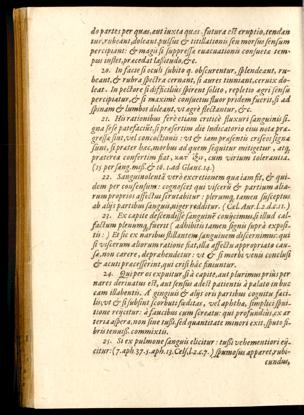 do partes per quas, aut iuxta quas futura est eruptio, tendan
tur, rubeant, doleant, pulsus & titillationis seu morsus sensum
percipiant: & magis si suppressæ euacuationis consuetæ tem-
pus instet, præcedat lassitudo, &c.
20. In facie si oculi subito obscurentur, splendeant, ru-
beant, & rubra spectra cernant, si aures tinniant, ceruix do-
leat. In pectore si difficilius spirent solito, repletio agri sensu
percipiatur, & si maximè consuetus fluor pridem fuerit, si ad
spinam & lumbos doleant, vt ægrè flectantur, &c.
21. Hi rationibus ferè etiam criticè fluxuri sanguinis si-
gna sese patefaciunt, si præsertim die Indicatorio eius nota præ-
gressa sint, vel concoctionis: vt & iam præsentis crisеos signa
sunt, si prater hoc, morbus ad quem sequitur mitigetur, atq,
præterea confertim fiat, cum virtium tolerantia.
(15 per sang. miss. & 16. 1. ad Glauc. 14.)
22. Sanguinolentæ verò excretionem quæ iam fit, & qui-
dem per consensum: cognoscet qui visceris & partium alia-
rum proprios affectus seruabit: plerumq, tamen susceptus
ab alijs partibus sanguis, niger redditur. (Cel. Aur. l. 2. d. c. 11.)
23. Ex capite descendisse sanguinem conijcimus, si illud cal-
factum plenumq, fuerit (adhibitis tamen signis supra exposi-
tis:) Et sic ex naribus stillantem sanguinem discernimus: qui
si viscerum aliorum ratione fiat, illa affectu appropriato cau-
sa, non carere, deprahendetur: vt & si morbi venæ conclusi
& acuti præcesserint, qui crisi hac finiuntur.
24. Qui per os expuitur si à capite, aut plurimus prius per
nares deriuatus est, aut sensus adest patientis à palato in buc
cam illabentis. A gingiuis & alijs oris partibus cognitu faci-
lis, vt & si subsint scorbuti suditas, vel aphthæ, simplici spu-
tione reijcitur: à faucibus cum screatu: qui profundiori, ex ar
teria aspera, non sine tussi, sed quantitate minori exit, sputo si-
bris tenuiss. commixtis.
25. Si ex pulmone sanguis elicitur: tussi vehementiori eij-
citur: (7. aph. 37. 5. aph. 13. Cels. l. 2. c. 7.) spumosus apparet, rubi-
cundus,